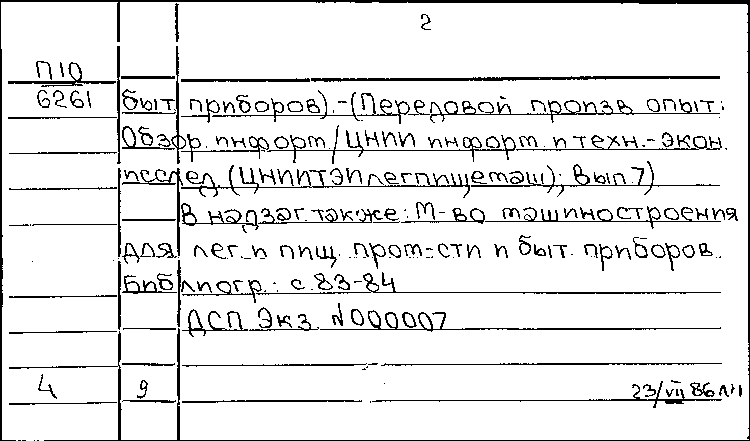 2
П10
6261 быт. приборов).-(Передовой произв. опыт:
Обзор. информ./ЦНИИ информ. и техн.-экон.
исслед. (ЦНИИТЭИлегпищемаш); Вып. 7)
В надзаг. также: М-во машиностроения
для лег. и пищ. пром-сти и быт. приборов.
Библиогр.: с. 83-84
ДСП Экз. N000007
4 9 23/VII 86